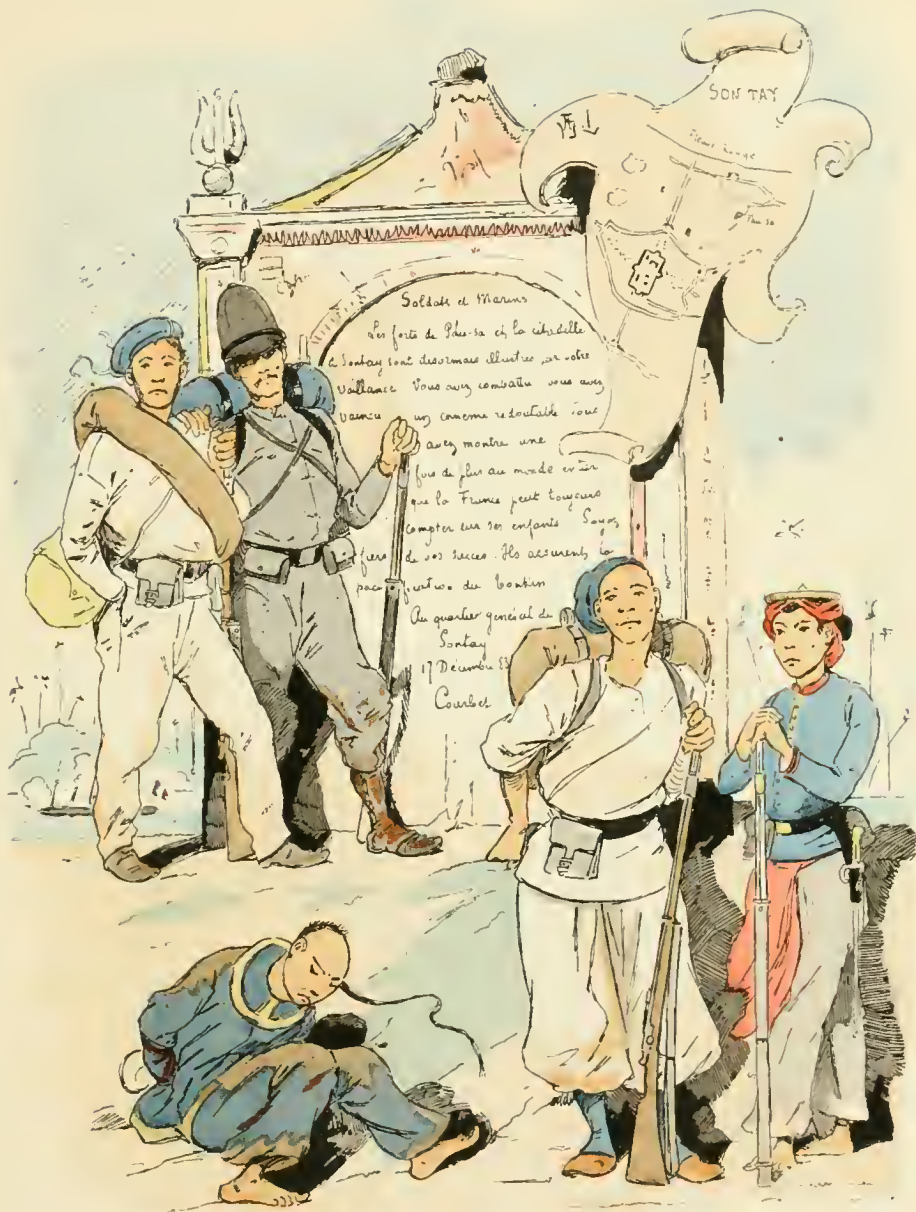 SON TAY
Fleuve Rouge
Phu Sa
Soldats et Marins
Les forts de Phu-sa et la citadelle
de Sontay sont desormais illustrés par votre
vaillance Vous avez combattu vous avez
vaincu un ennemi redoutable Vous
avez montre une
fois de plus au monde entier
que la France peut toujours
compter sur ses enfants Soyez
fiers de vos succes. Ils assurent la
pacification du Tonkin
Au quartier général de
Sontay
17 Décembre 83
Courbet